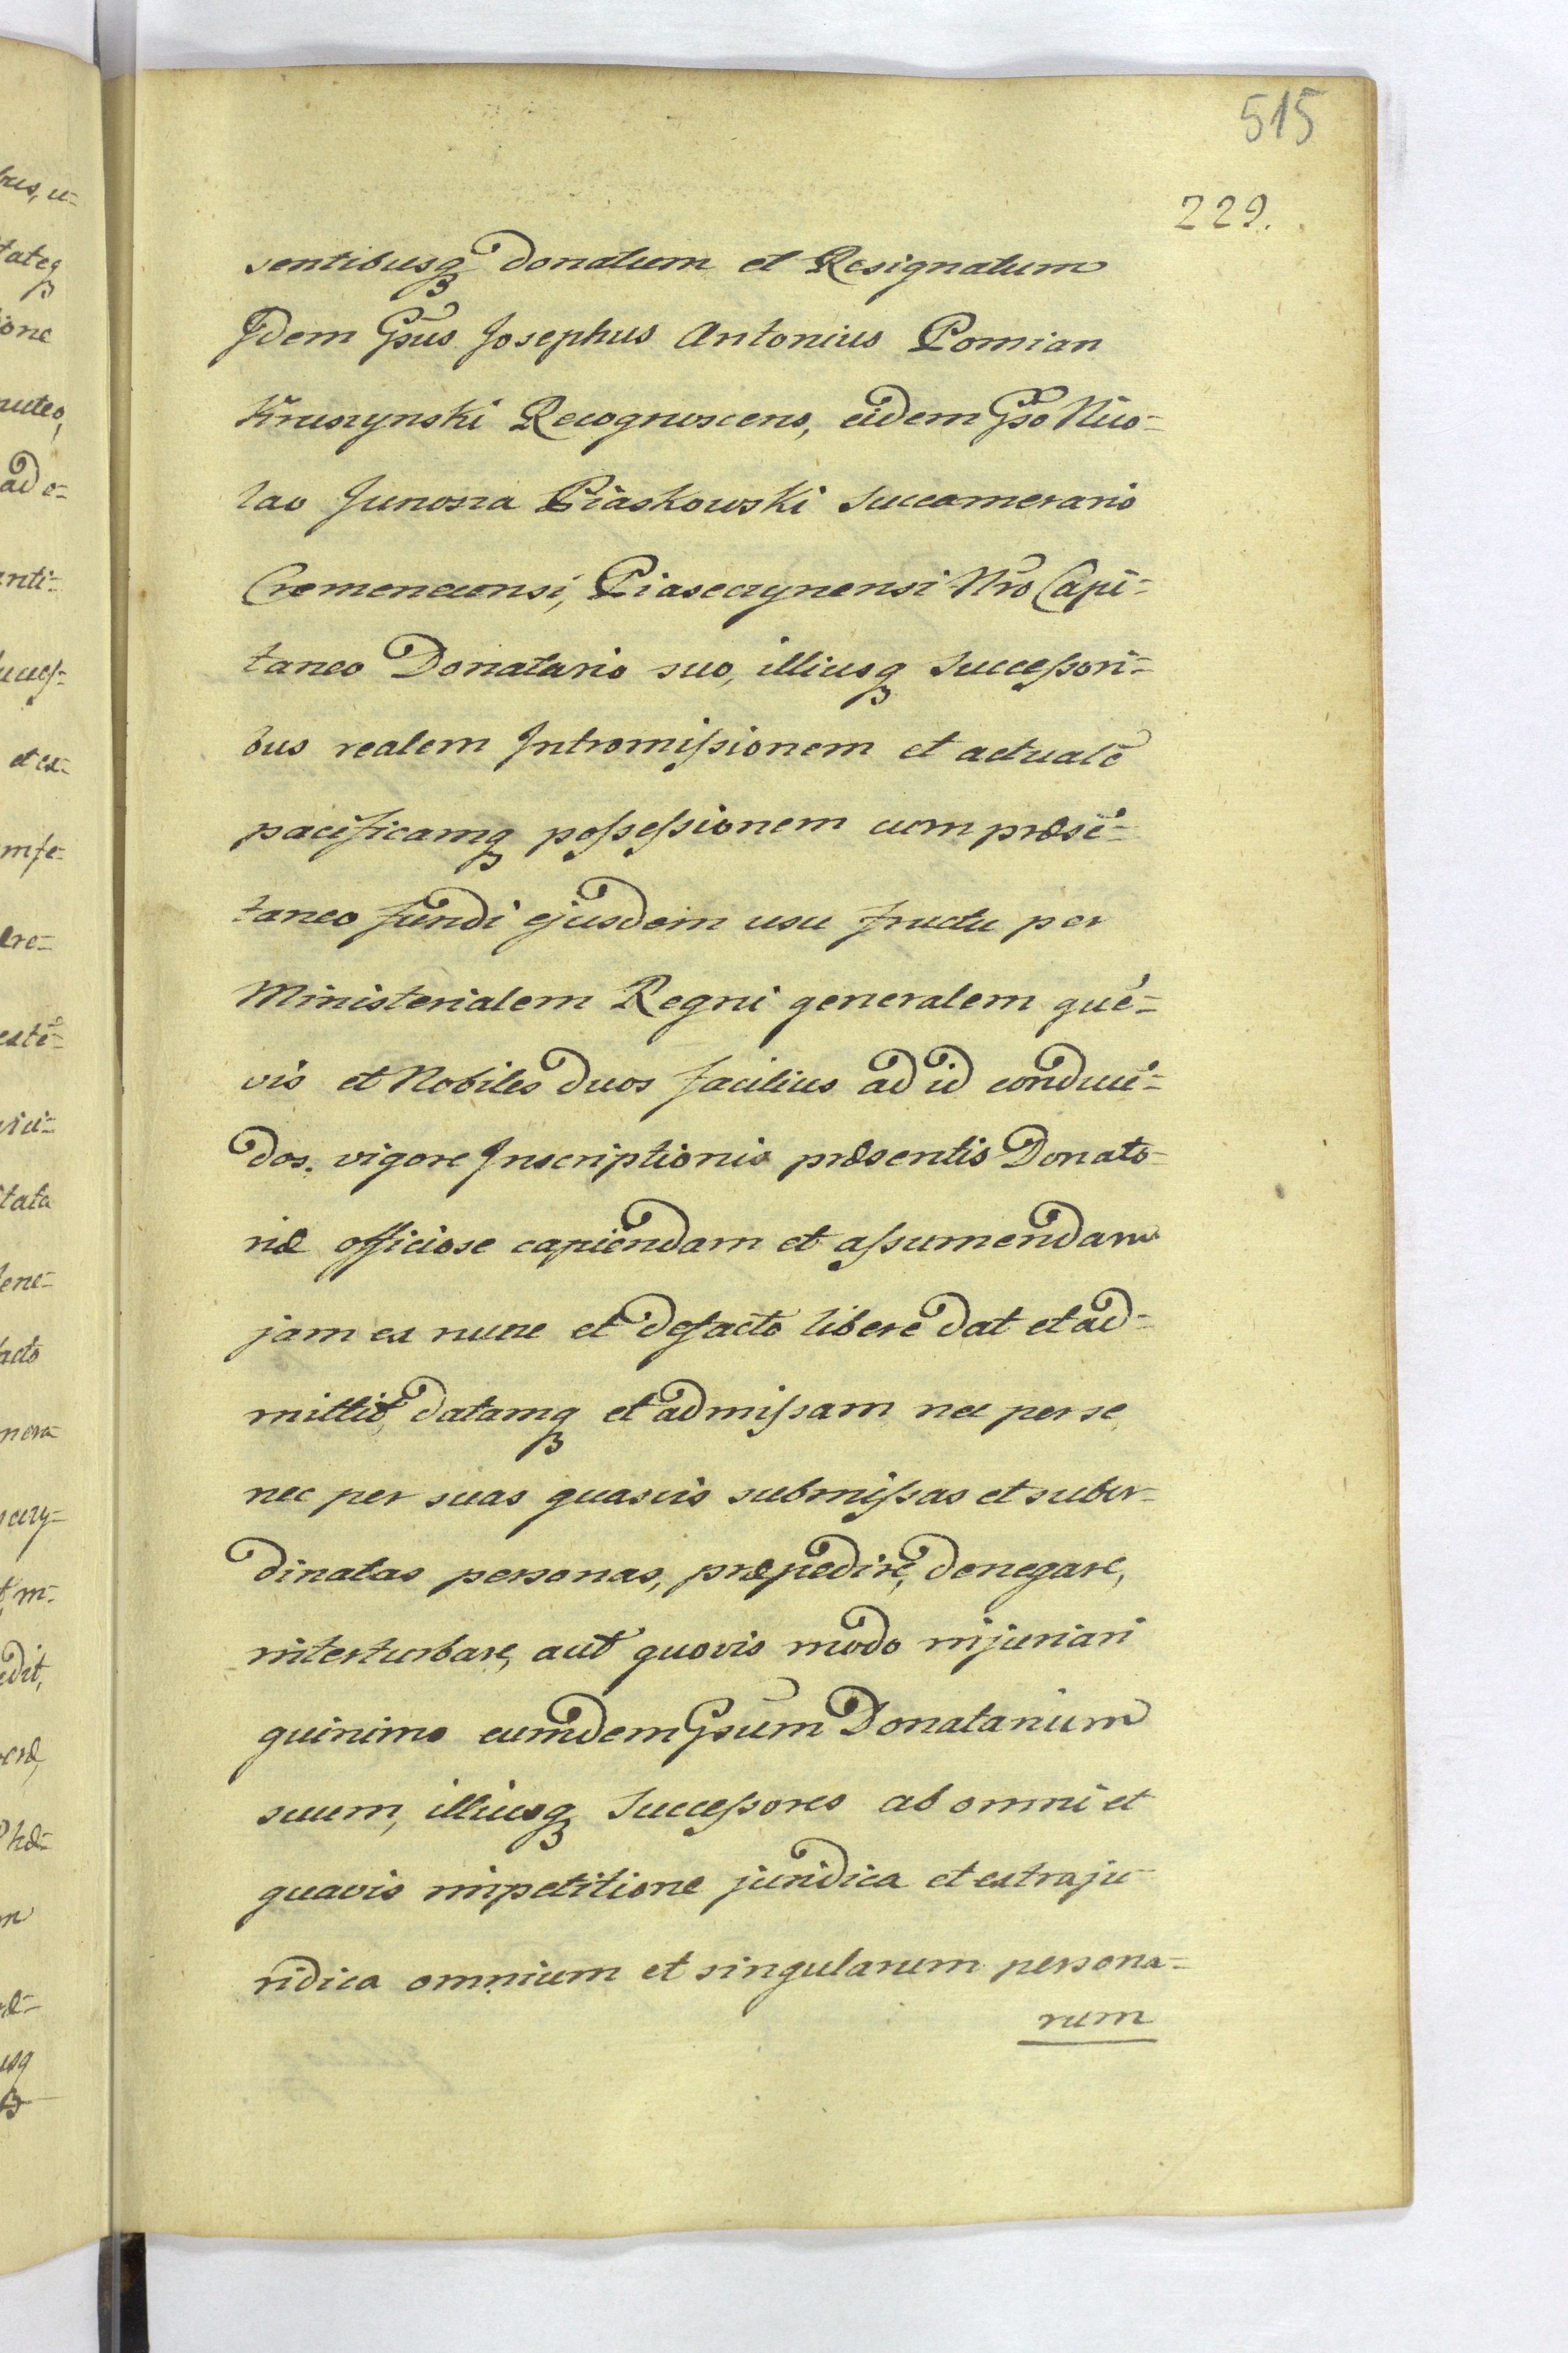 515
229.
sentibusq₃ donatum et Resignatum
Idem Gsūs Josephus Antonius Pomian
Kruszynski Recognoscens, eidem Gsō Nico=
lao Junosza Piaskowski Succamerario
Cremenecensi, Piaseczynensi Nrō Capi=
taneo Donatario suo, illiusq₃ Successori=
bus realem Intromissionem et actualē
pacificamq₃ possessionem cum præsē=
taneo fundi ejusdem usu fructu per
Ministerialem Regni generalem quē=
vis et Nobiles duos facilius ad id conducē=
dos. vigore Inscriptionis præsentis Donato=
riæ officiose capiendam et assumendam
jam ex nunc et defacto libere dat et ad=
mittit, datamq₃ et admissam nec per se
nec per suas quasvis submissas et subor=
dinatas personas, præpedire, denegare,
interturbare, aut quovis modo injuriari
quinimo eumdem Gsūm Donatarium
suum, illiusq₃ Successores ab omni et
quavis impetitione juridica et extraju=
ridica omnium et singularum persona=
rum